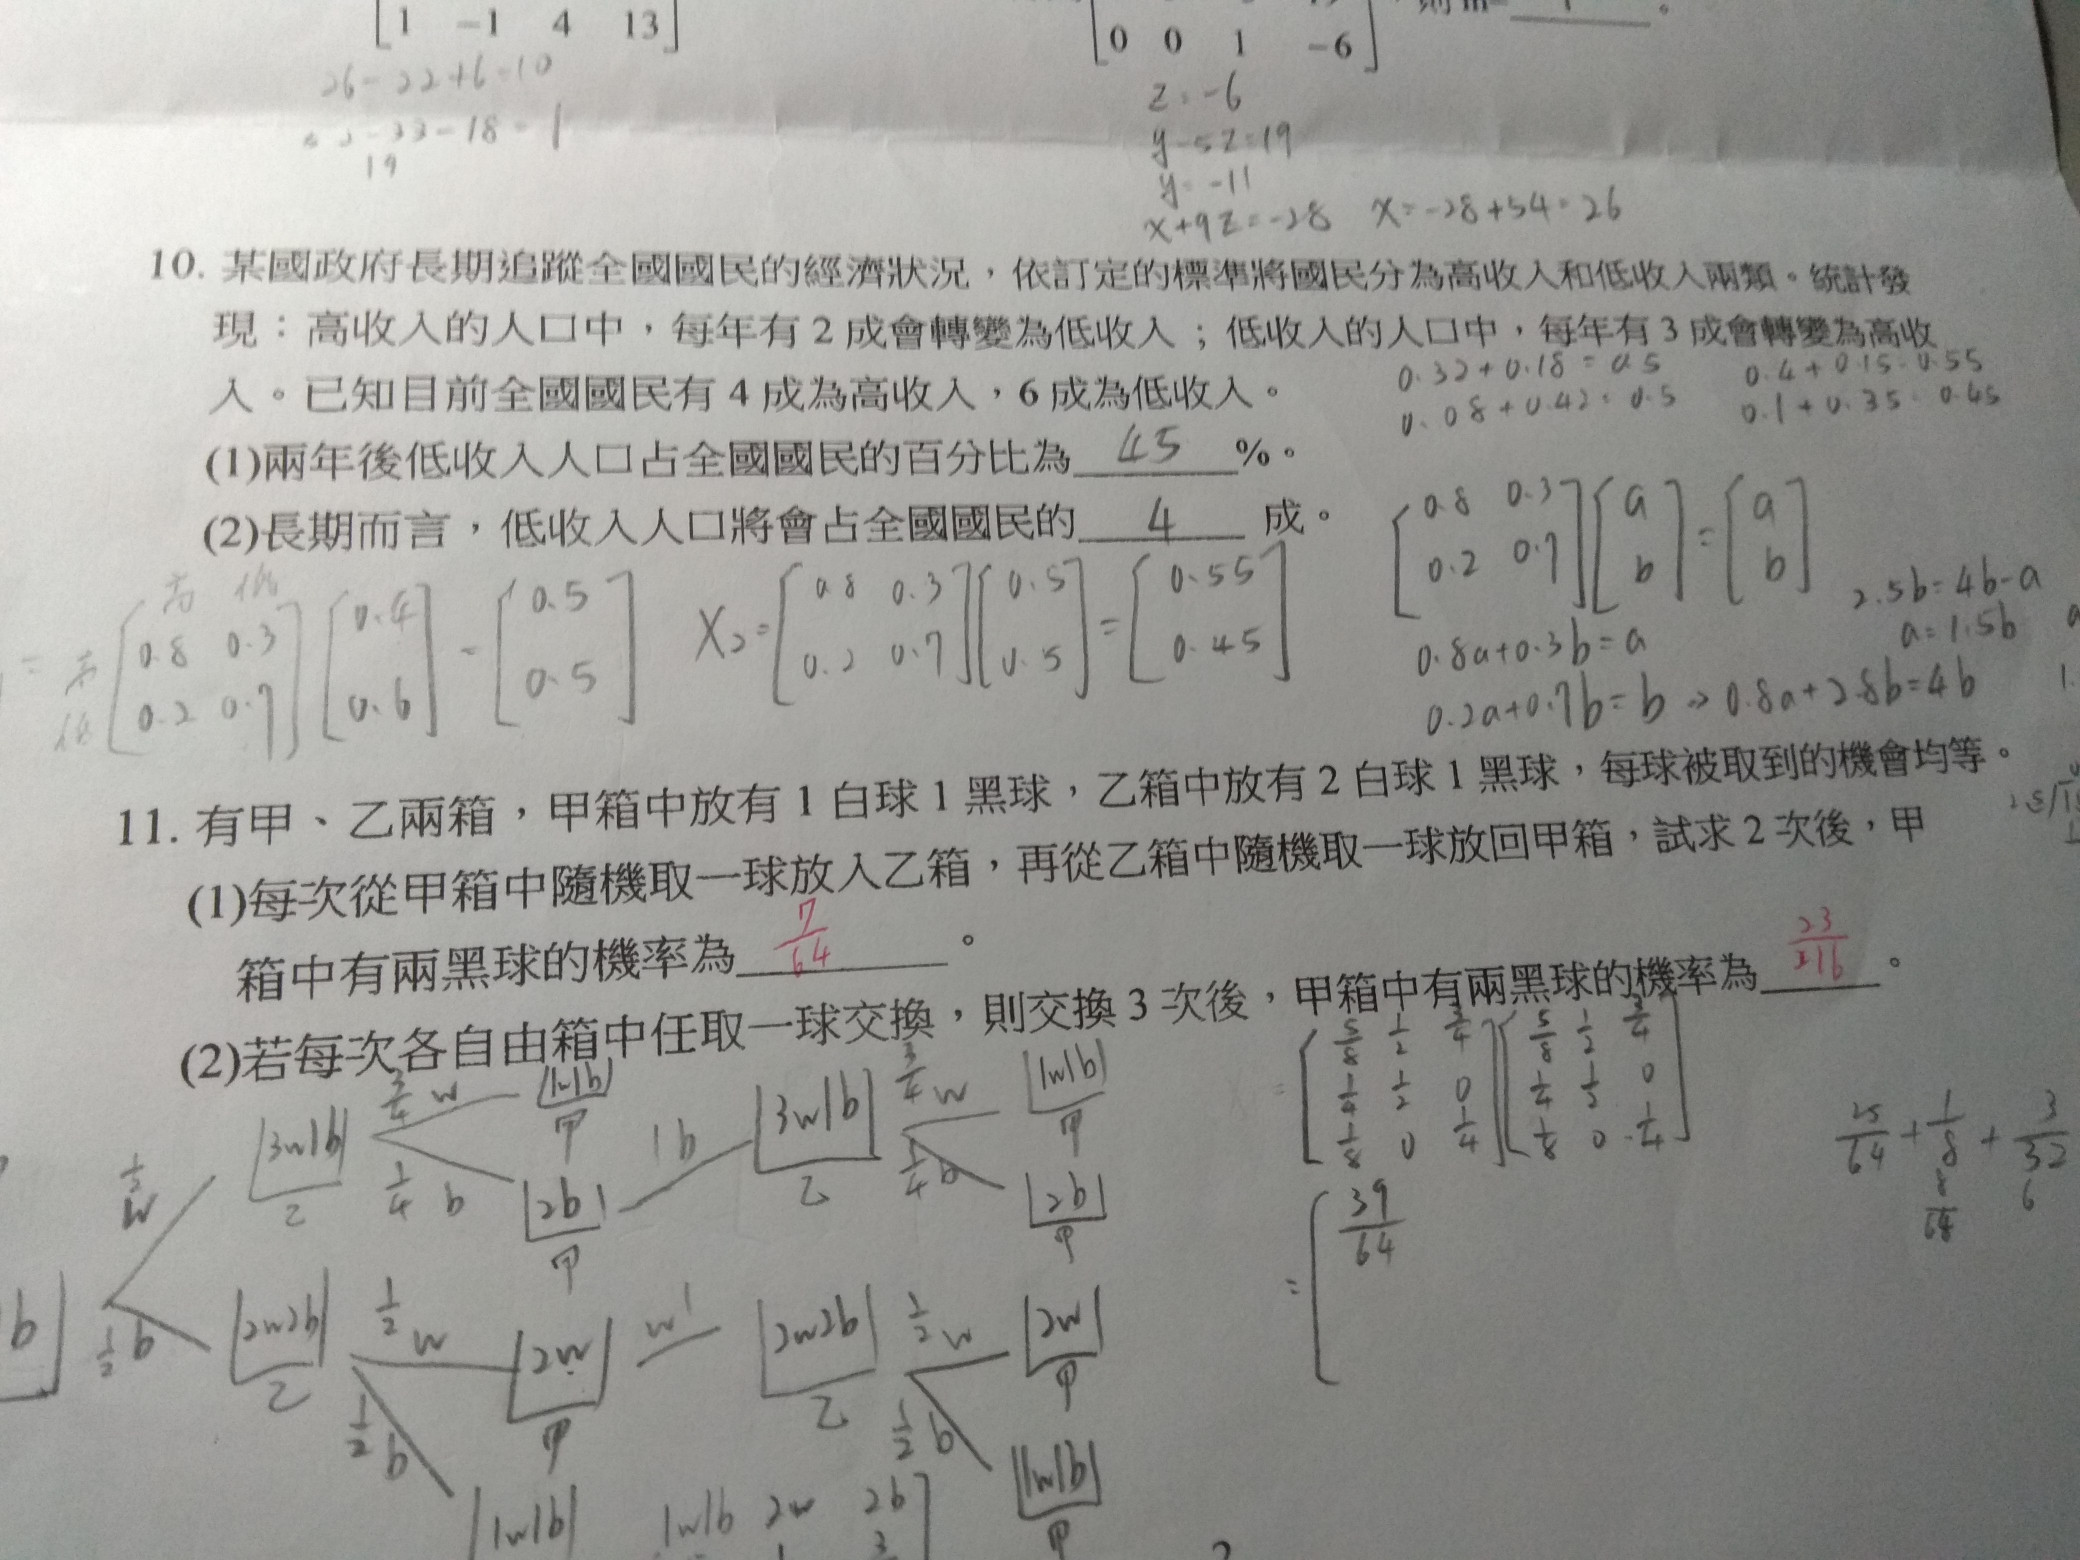 1 -1 4 13
0 0 1 -6
26-22+6=10
-33-18=1
19
z=-6
y-5z=19
y=-11
x+9z=-28 x=-28+54=26
10. 某國政府長期追蹤全國國民的經濟狀況，依訂定的標準將國民分為高收入和低收入兩類。統計發
現：高收入的人口中，每年有 2 成會轉變為低收入；低收入的人口中，每年有 3 成會轉變為高收
入。已知目前全國國民有 4 成為高收入，6 成為低收入。
0.32+0.18=0.5 0.4+0.15=0.55
0.08+0.42=0.5 0.1+0.35=0.45
(1)兩年後低收入人口占全國國民的百分比為 45 %。
(2)長期而言，低收入人口將會占全國國民的 4 成。
[0.8 0.3] [a] = [a]
[0.2 0.7] [b] [b]
高 低
= 高 [0.8 0.3] [0.4] = [0.5] X₂= [0.8 0.3] [0.5] = [0.55]
低 [0.2 0.7] [0.6] [0.5] [0.2 0.7] [0.5] [0.45]
2.5b=4b-a
a=1.5b
0.8a+0.3b=a
0.2a+0.7b=b → 0.8a+2.8b=4b
11. 有甲、乙兩箱，甲箱中放有 1 白球 1 黑球，乙箱中放有 2 白球 1 黑球，每球被取到的機會均等。
(1)每次從甲箱中隨機取一球放入乙箱，再從乙箱中隨機取一球放回甲箱，試求 2 次後，甲
箱中有兩黑球的機率為 7/64 。
(2)若每次各自由箱中任取一球交換，則交換 3 次後，甲箱中有兩黑球的機率為 23/216 。
= [5/8 1/2 3/4] [5/8 1/2 3/4]
[1/4 1/2 0] [1/4 1/2 0]
[1/8 0 1/4] [1/8 0 1/4]
25/64 + 1/8 + 3/32
8/64 6
= [39/64
1/2 w 3w1b 乙 3/4 w 1w1b 甲
1/4 b 2b 甲 1 b 3w1b 乙 3/4 w 1w1b 甲
1/4 b 2b 甲
b 1/2 b 2w2b 乙 1/2 w 2w 甲 w 1 2w2b 乙 1/2 w 2w 甲
1/2 b 1w1b
1/2 b 1w1b 甲
1w1b 2w 2b